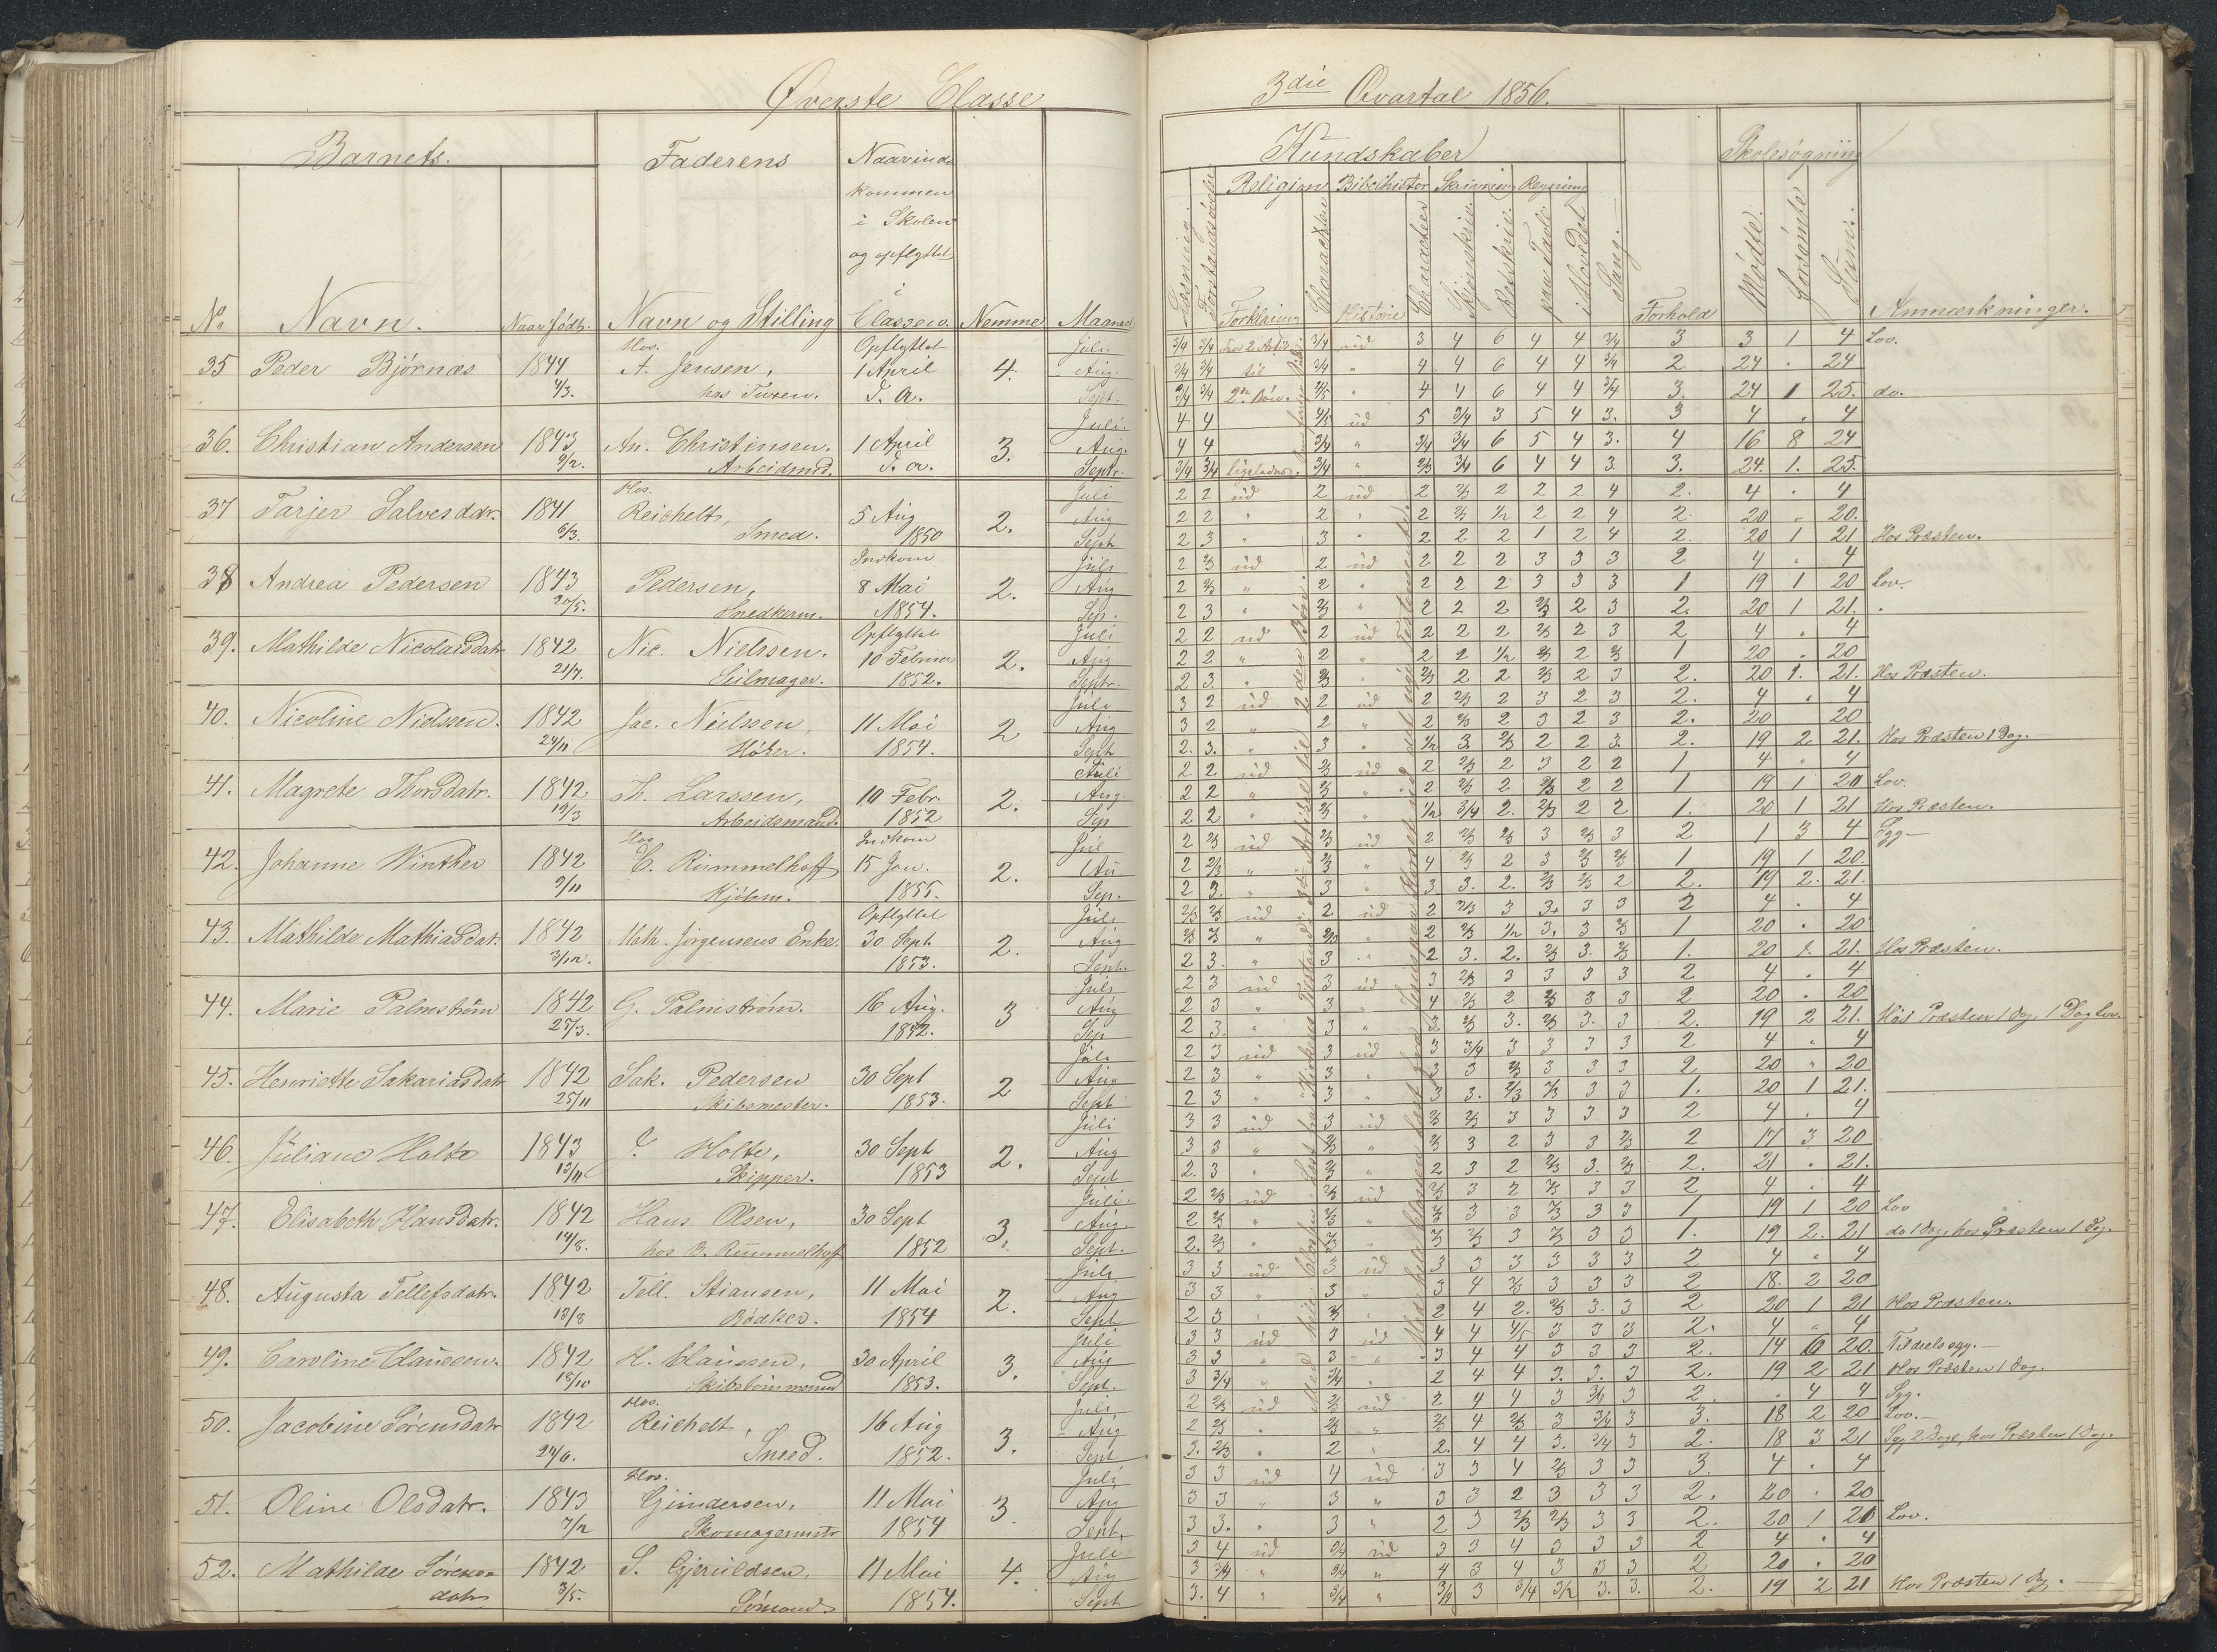 Øverste Classe
3die Qvartal 1856.
Barnets.
Faderens
Naar indkommen i Skolen og opflyttet i Classen.
Kundskaber
Skolesøgning
Religion Bibelhistor Skrivning Regning
No Navn. Naar født. Navn og Stilling Nemme Maaned
Læsning. Forklaring Character Historie Character Sang. Forhold Mødte. Forsømte Sum. Anmærkninger.
35 Peder Bjørnæs 1844 4/3. Hos. A. Jensen, hos Tuxen. Opflyttet 1 April d. a. 4.
Juli 3/4 3/4 3/4 ud 3 4 6 4 4 3/4 3 3 1 4 Lov.
Aug. 3/4 3/4 til 3/4 " 4 4 6 4 4 3/4 2 24 . 24
Sept. 3/4 3/4 4/5 " 4 4 6 4 4 3/4 3. 24 1 25. do.
36. Christian Andersen 1843 9/2. An. Christensen. Arbeidsmd. 1 April d. a. 3.
Juli. 4 4 4/5 ud 5 3/4 3 5 4 3. 3 4 . 4
Aug. 4 4 3/4 " 3/4 3/4 6 5 4 3. 4 16 8 24
Septr. 3/4 3/4 ligeledes. 3/4 " 2/3 3/4 6 4 4 3. 3. 24. 1. 25.
37 Tarjer Salvesdatr. 1841 6/3. Hos. Reichelt, Smed. 5 Aug 1850 2.
Juli 2 2 ud 2 ud 2 2/3 2 2 2 4 2. 4 . 4
Aug 2 2 " 2 " 2 2/3 1/2 2 2 4 2. 20 . 20.
Sept 2 3 " 3 " 2 2 2 1 2 4 2. 20 1 21 Hos Præsten.
38 Andrea Pedersen 1843 20/5. Pedersen, Snedkerm. Indkom 8 Mai 1854. 2.
Juli 2 2/3 ud 2 ud 2 2 2 3 3 3 2 4 . 4
Aug 2 2/3 " 2 " 2 2 2 3 3 3 1 19 1 20 Lov.
Sep. 2 3 " 2/3 " 2 2 2 2/3 2 3 2. 20 1 21.
39. Mathilde Nicolaisdatr 1842 21/7. Nic. Nielssen. Seilmager. Opflyttet 10 Februar 1852. 2.
Juli 2 2 ud 2 ud 2 2 2 2/3 2 3 2 4 . 4
Aug 2 2 " 2 " 2 2 1/2 2/3 2 2/3 1 20 . 20
Septr. 2 3. " 2/3 " 2/3 2 2 2/3 2 3 2. 20 1. 21. Hos Præsten.
40. Nicoline Nielssen. 1842 24/11 Jac. Nielssen, Høker. 11 Mai 1854. 2
Juli 3 2 ud 2 ud 2 2/3 2 3 2 3 2. 4 . 4
Aug 3 2 " 2 " 2 2/3 2 3 2 3 2. 20 20
Sept 2. 3. " 3 " 1/2 3. 2/3 2 2 3. 2. 19 2 21. Hos Præsten 1 Dag.
41. Magrete Thorsdatr. 1842 19/3 Th. Larssen, Arbeidsmand. 10 Febr. 1852 2.
Juli 2 2 ud 2/3 ud 2 2/3 2 3 2 2 1 4 . 4
Aug. 2 2 " 2/3 " 2 2/3 2 2/3 2 2 1 19 1 20 Lov.
Sep 2 2 " 2/3 " 1/2 3/4 2. 2/3 2 2 1. 20 1 21 Hos Præsten.
42. Johanne Winther 1842 9/11 Hos C. Rummelhoff Kjøbm. Indkom 15 Jan. 1855. 2.
Jul 2 2/3 ud 2/3 ud 2 2/3 2/3 3 2/3 3 2 1 3 4 Syg
Au. 2 2/3 " 2/3 " 4 2/3 2 3 2/3 2/3 1 19 1 20.
Sep. 2 3. " 3 " 3 3. 2. 2/3 2/3 2 2. 19 2. 21.
43. Mathilde Mathiasdatr. 1842 3/12. Math. Jørgensens Enke. Opflyttet 30 Sept 1853. 2.
Juli 2/3 2/3 ud 2 ud 2 2/3 3 3. 3 3 2 4 . 4
Aug 2/3 2/3 " 2/3 " 2 2/3 1/2 3. 3 2/3 1 20 . 20
Sept. 2 3. " 3 " 2 3. 2. 2/3 3. 2/3 1. 20 1. 21. Hos Præsten.
44. Marie Palmstrøm 1842 25/3. G. Palmstrøm. 16 Aug. 1852. 3
Juli 2 3 ud 3 ud 3 2/3 3 3 3 3 2 4 . 4
Aug 2 3 " 3 " 4 2/3 2 2/3 3 3 2 20 . 20
Sep 2 3. " 3 " 3. 2/3 3. 2/3 3. 3 2. 19 2 21. Hos Præsten 1 Dag, 1 Dag Lov.
45. Henriette Sakariasdatr 1842 25/11 Sak. Pedersen Skibsmester. 30 Sept 1853. 2
Juli 2 3 ud 3 ud 3 3/4 3 3 3 3 2 4 " 4
Aug 2 3 " 3 " 3 3 2/3 3 3 3 2 20 " 20
Sept 2 3 " 3 " 3 3. 2/3 2/3 3 3 1. 20 1 21.
46. Juliane Holte 1843 13/11 Holte, Skipper. 30 Sept 1853 2.
Juli 3 3 ud 3 ud 2/3 2/3 3 3 3 3 2 4 . 4
Aug 3 3 " 2/3 " 2/3 3 2 3 3 2/3 2 17 3 20
Sept 2. 3 " 2/3 " 2 3 2 2/3 3. 2/3 2. 21 . 21.
47. Elisabeth Hansdatr. 1842 14/8. Hans Olsen, hos B. Rummelhoff 30 Sept 1852 3.
Juli. 2 2/3 ud 2/3 ud 2/3 3 2 2/3 3 3 2 4 . 4
Aug. 2 2/3 " 2/3 " 2/3 3 3 2/3 3 3 1 19 1 20 Lov
Sept. 2. 2/3 " 2/3 " 2/3 2/3 3 2/3 3 3 1. 19 2. 21 do 1 Dag, hos Præsten 1 Dag.
48. Augusta Tellefsdatr. 1842 13/8 Tell. Stiansen, Bødker. 11 Mai 1854 2.
Juli 3 3 ud 3 ud 3 3 3 3 3 3 2 4 . 4
Aug 3 3 " 3 " 3 4 2/3 3 3 3 2 18. 2 20
Sept 2 3 " 2/3 " 2 4 2. 2/3 3. 3 2 20 1 21 Hos Præsten.
49. Caroline Claussen. 1842 18/10 H. Claussen, Skibstømmermand 30 April 1853. 3.
Juli 3 3 ud 3 ud 4 4 4/5 3 3 3 2. 4 " 4
Aug 3 3 " 3 " 3 4 4 3 3 3 2. 14 6 20. Tildeels syg.
Sept. 3 3/4 " 3/4 " 2 4 4 3. 3. 3 2. 19 2 21 Hos Præsten 1 Dag.
50. Jacobine Sørensdatr 1842 24/6. Hos. Reichelt, Smed. 16 Aug 1852. 3.
Juli 2 2/3 ud 2/3 ud 2 4 4 3 3/4 3 2. . 4 4 Syg.
Aug 2 2/3 " 2/3 " 2/3 4 2/3 3 3/4 3 3. 18 2 20 Lov.
Sept 2. 2/3 " 2 " 2. 4 4 3. 3/4 3 2. 18 3 21 Syg 2 Dage, hos Præsten 1 Dag.
51. Oline Olsdatr. 1843 7/2 Hos. Gundersen, Skomagermstr 11 Mai 1854 3.
Juli 3 3 ud 4 ud 3 3 4 2/3 3 3 3. 4 . 4
Aug 3 3 " 3 " 3 3 2 3 3 3 2. 20 . 20
Sept. 3 3. " 3 " 2 3 2/3 2/3 3 3 2. 20 1 21 Lov.
52. Mathilde Sørensdatr 1842 3/5. S. Gjeruldsen, Sømand. 11 Mai 1854. 4.
Juli 3 4 ud 3/4 ud 3 3 4 3 3 3 2 4 . 4
Aug 3 3/4 " 3/4 " 4 3 4 3 3 3 2 20 . 20
Sept 3. 4 " 3/4 " 3/4 3 3/4 3/2 3. 3. 2. 19 2 21 Hos Præsten 1 Dag.